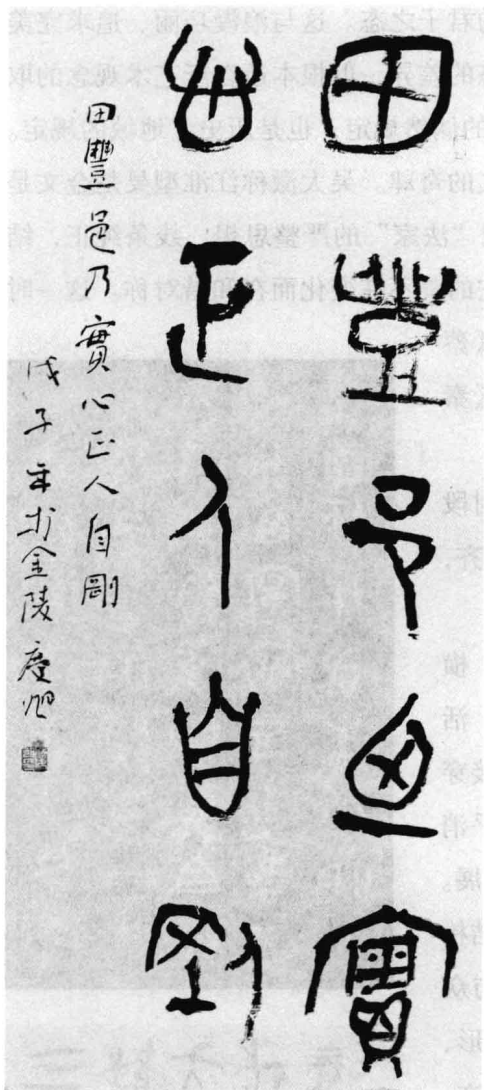 田豐邑乃實
心正人自剛
田豐邑乃實心正人自剛
戊子年於金陵慶旭